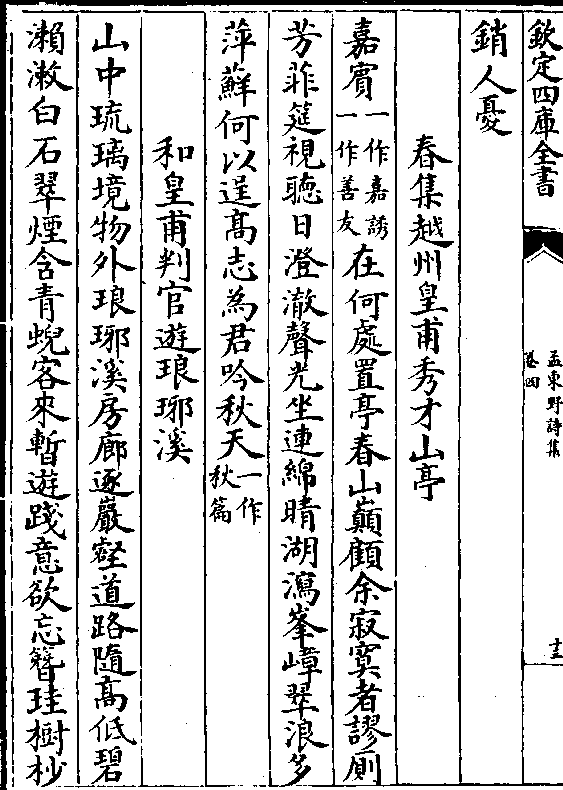 欽定四庫全書
孟東野詩集
卷四
十三
銷人憂
春集越州皇甫秀才山亭
嘉賓一作嘉誘一作善友在何處置亭春山巔顧余寂寞者謬厠
芳菲筵視聽日澄澈聲光坐連綿晴湖瀉峯嶂翠浪多
萍蘇何以逞高志為君吟秋天一作秋篇
和皇甫判官遊琅琊溪
山中琉璃境物外琅琊溪房廊逐巖壑道路隨高低碧
瀨漱白石翠煙含青蜺客來暫遊踐意欲忘簪珪樹杪